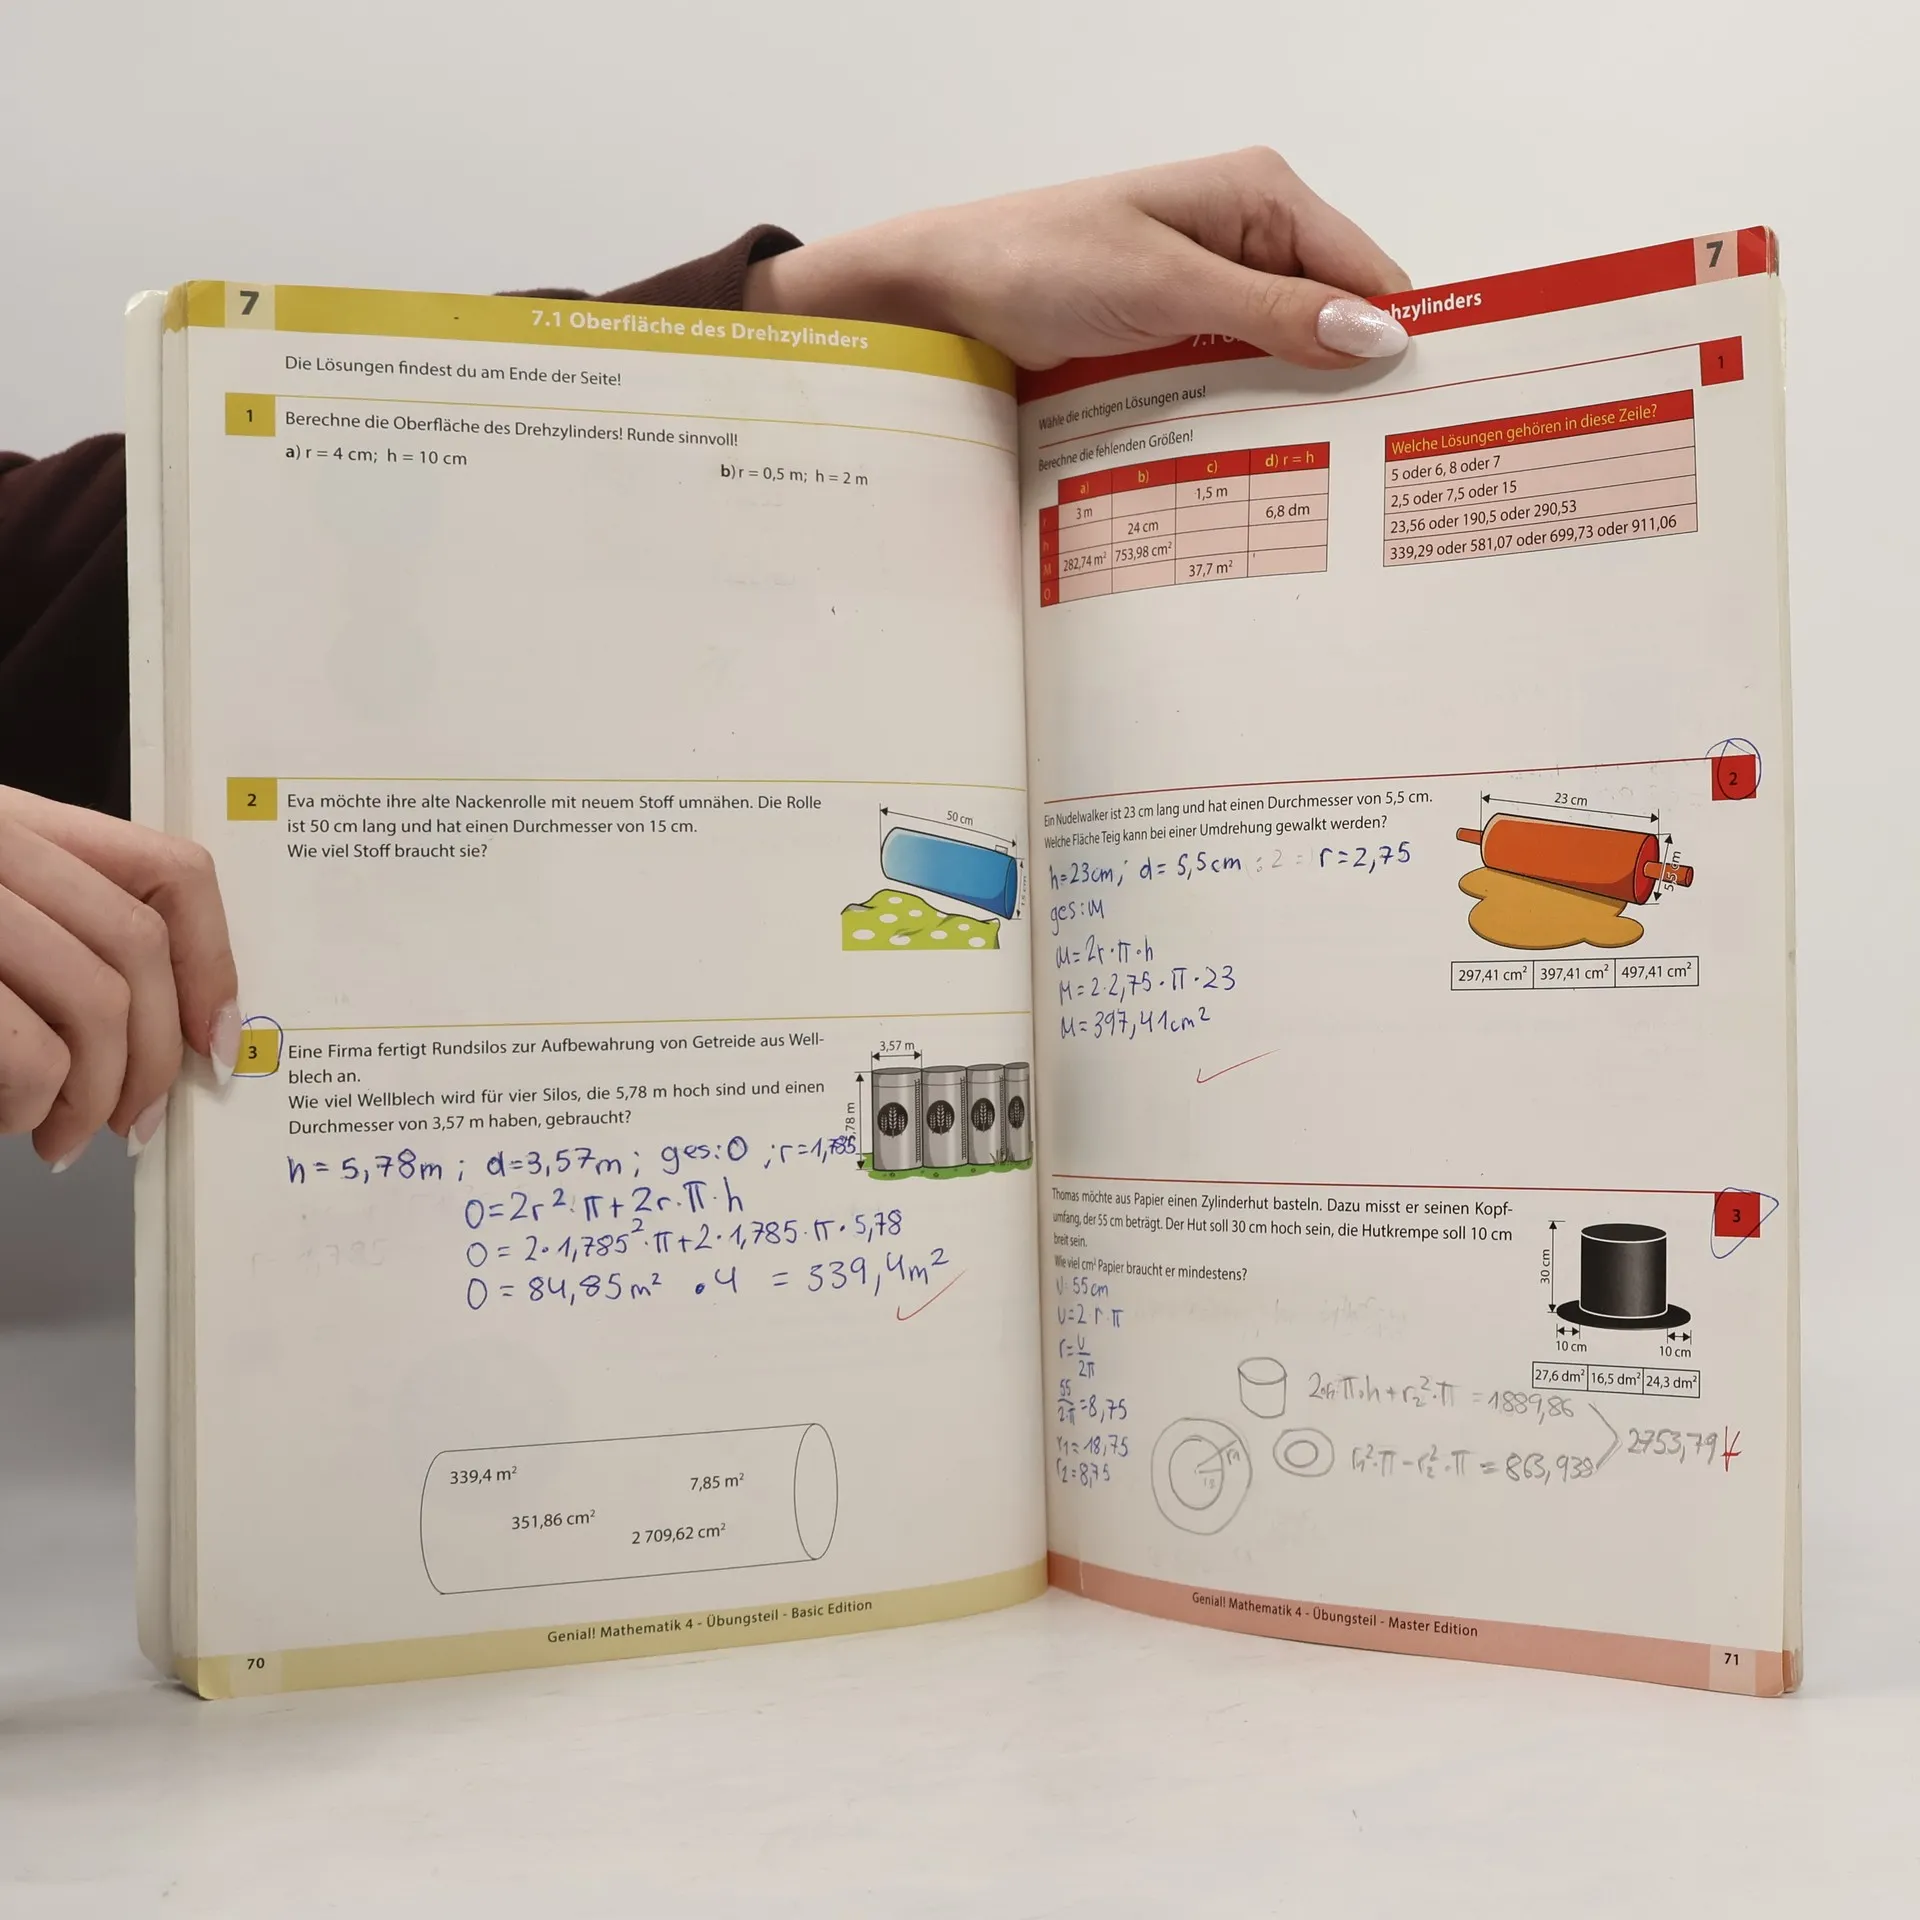 7
7.1 Oberfläche des Drehzylinders
Die Lösungen findest du am Ende der Seite!
1
Berechne die Oberfläche des Drehzylinders! Runde sinnvoll!
a) r = 4 cm; h = 10 cm
b) r = 0,5 m; h = 2 m
2
Eva möchte ihre alte Nackenrolle mit neuem Stoff umnähen. Die Rolle
ist 50 cm lang und hat einen Durchmesser von 15 cm.
Wie viel Stoff braucht sie?
50 cm
15 cm
3
Eine Firma fertigt Rundsilos zur Aufbewahrung von Getreide aus Well-
blech an.
Wie viel Wellblech wird für vier Silos, die 5,78 m hoch sind und einen
Durchmesser von 3,57 m haben, gebraucht?
3,57 m
5,78 m
h = 5,78m ; d=3,57m ; ges: O ; r=1,785
O=2r²·π+2r·π·h
O = 2·1,785²·π+2·1,785·π·5,78
O = 84,85m² ·4 = 339,4m²
r 1,785
339,4 m²
7,85 m²
351,86 cm²
2 709,62 cm²
Genial! Mathematik 4 - Übungsteil - Basic Edition
70
7
7.1 hzylinders
Wähle die richtigen Lösungen aus!
1
Berechne die fehlenden Größen!
a) b) c) d) r = h
r 3 m 1,5 m
h 24 cm 6,8 dm
M 282,74 m² 753,98 cm²
O 37,7 m²
Welche Lösungen gehören in diese Zeile?
5 oder 6, 8 oder 7
2,5 oder 7,5 oder 15
23,56 oder 190,5 oder 290,53
339,29 oder 581,07 oder 699,73 oder 911,06
2
Ein Nudelwalker ist 23 cm lang und hat einen Durchmesser von 5,5 cm.
Welche Fläche Teig kann bei einer Umdrehung gewalkt werden?
23 cm
5,5 cm
h=23cm; d= 5,5cm :2 = r=2,75
ges: M
M=2r·π·h
M=2·2,75·π·23
M=397,41cm²
297,41 cm² 397,41 cm² 497,41 cm²
3
Thomas möchte aus Papier einen Zylinderhut basteln. Dazu misst er seinen Kopf-
umfang, der 55 cm beträgt. Der Hut soll 30 cm hoch sein, die Hutkrempe soll 10 cm
breit sein.
Wie viel cm² Papier braucht er mindestens?
30 cm
10 cm
10 cm
27,6 dm² 16,5 dm² 24,3 dm²
U=55cm
U=2·r·π
r=U/2π
55/2·π=8,75
r1=18,75
r2=8,75
π·h+r2²·π = 1889,86
r1²·π-r2²·π = 863,938
2753,79
Genial! Mathematik 4 - Übungsteil - Master Edition
71